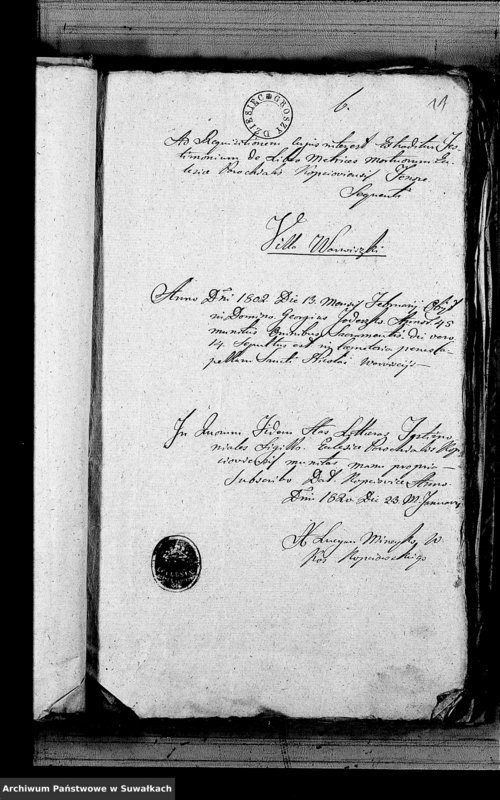 6.
11
DZIESIĘĆ GROSZY
Ad Requisitionem cujus interest Extraditur Tes-
timonium de Libro Metrices Mortuorum Ec-
lesiæ Parochialis Kopcioviensis Tenore
Sequenti
Villa Warwiszki
Anno Dñi 1802 Die 13 Mensis Februarij Obijt
in Domino Georgius Annor. 45
munitus omnibus Sacramentis die vero
14 Sepultus est in Cœmeterio penes Ca-
pellam Sancti Nicolai
In Quorum Fidem Has Litteras Testimo-
niales Sigillo Eclesiæ Parochialis Kop-
cioviensis munitas manu propria
Subscribo Dat. Kopciovice Anno
Dñi 1820 Die 23 M Januarij
X Lucyan W.
Koś. Kopciowskiego
Archiwum Państwowe w Suwałkach